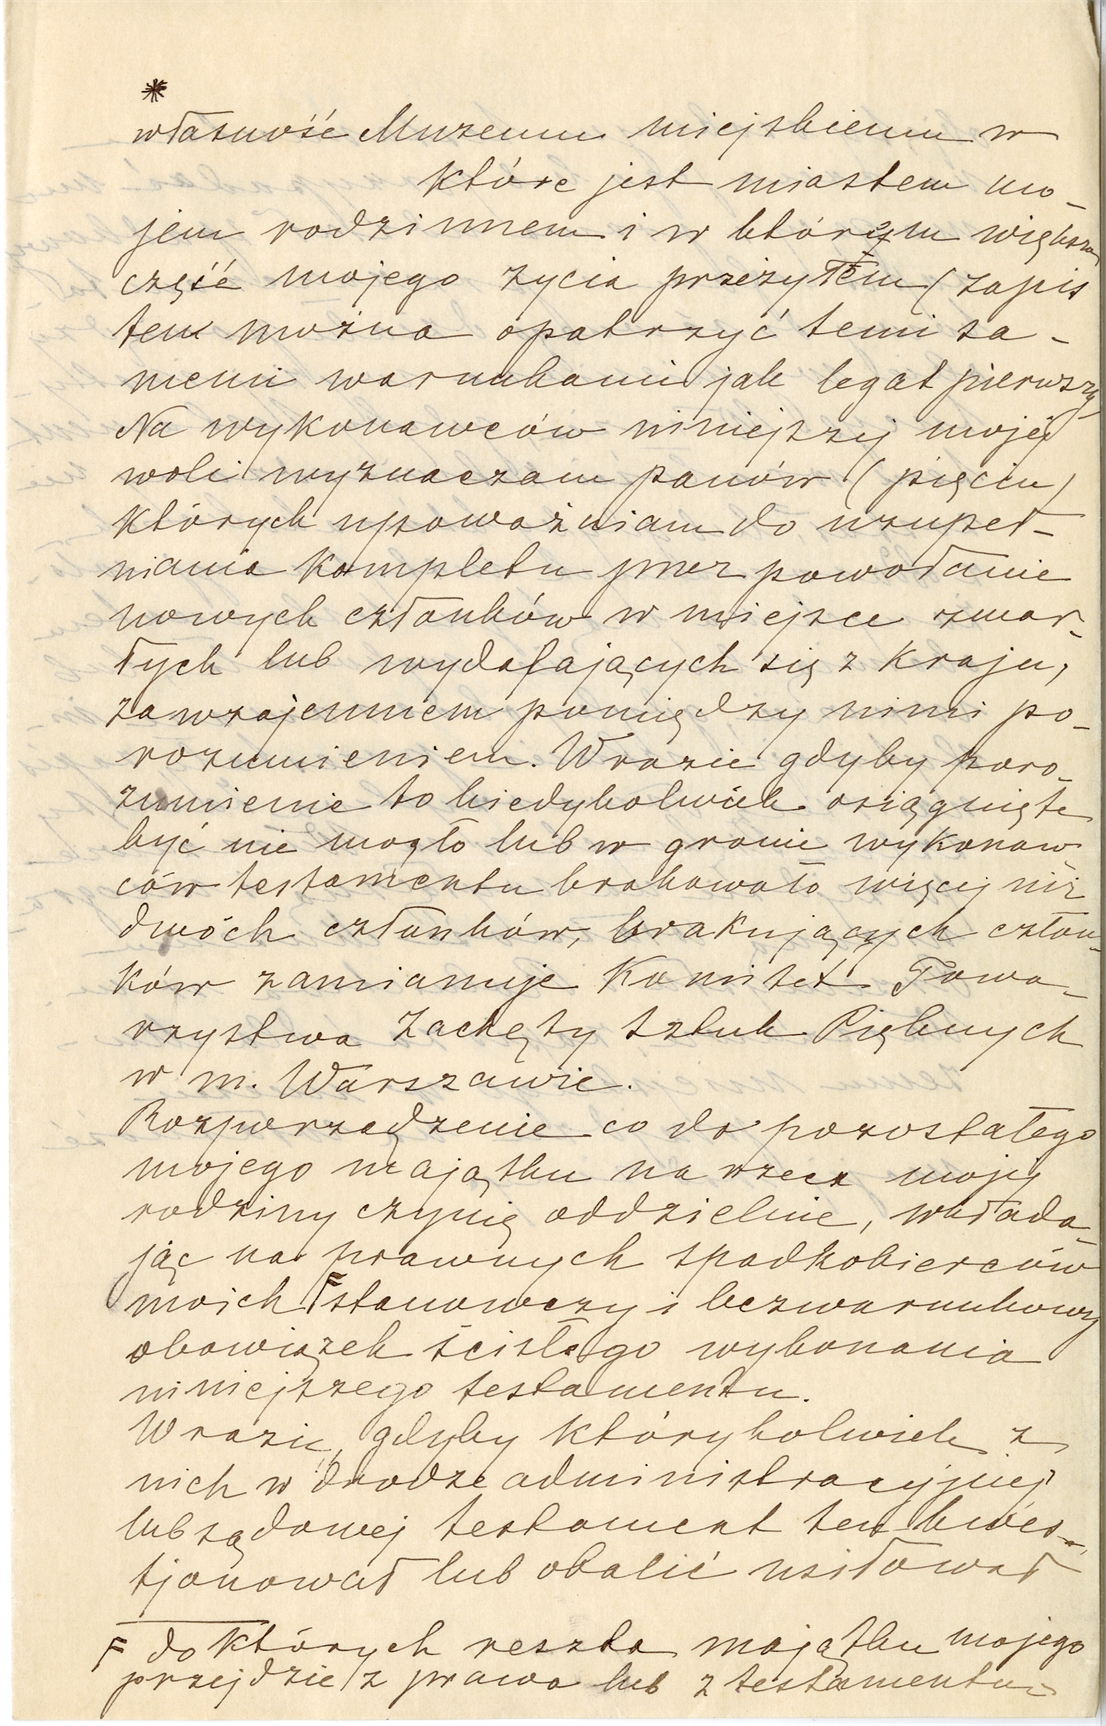 *
własność Muzeum miejskiemu w
które jest miastem mo-
jem rodzinnem i w którym większą
część mojego życia przeżyłem (zapis
ten można opatrzyć temi sa-
memi warunkami jak legat pierwszy
Na wykonawców niniejszej mojej
woli wyznaczam panów (pięciu)
których upoważniam do uzupeł-
niania kompletu przez powołanie
nowych członków w miejsce zmar-
łych lub wydalających się z kraju,
za wzajemnem pomiędzy nimi po-
rozumieniem. W razie gdyby poro-
zumienie to kiedykolwiek osiągnięte
być nie mogło lub w gronie wykonaw-
ców testamentu brakowało więcej niż
dwóch członków, brakujących człon-
ków zamianuje Komitet Towa-
rzystwa Zachęty Sztuk Pięknych
w m. Warszawie.
Rozporządzenie co do pozostałego
mojego majątku na rzecz mojej
rodziny czynię oddzielnie, wkłada-
jąc na prawnych spadkobierców
moich F stanowczy i bezwarunkowy
obowiązek ścisłego wykonania
niniejszego testamentu.
W razie, gdyby którykolwiek z
nich w drodze administracyjnej
lub sądowej testament ten kwes-
tjonował lub obalić usiłował
F do których reszta majątku mojego
przejdzie z prawa lub z testamentu